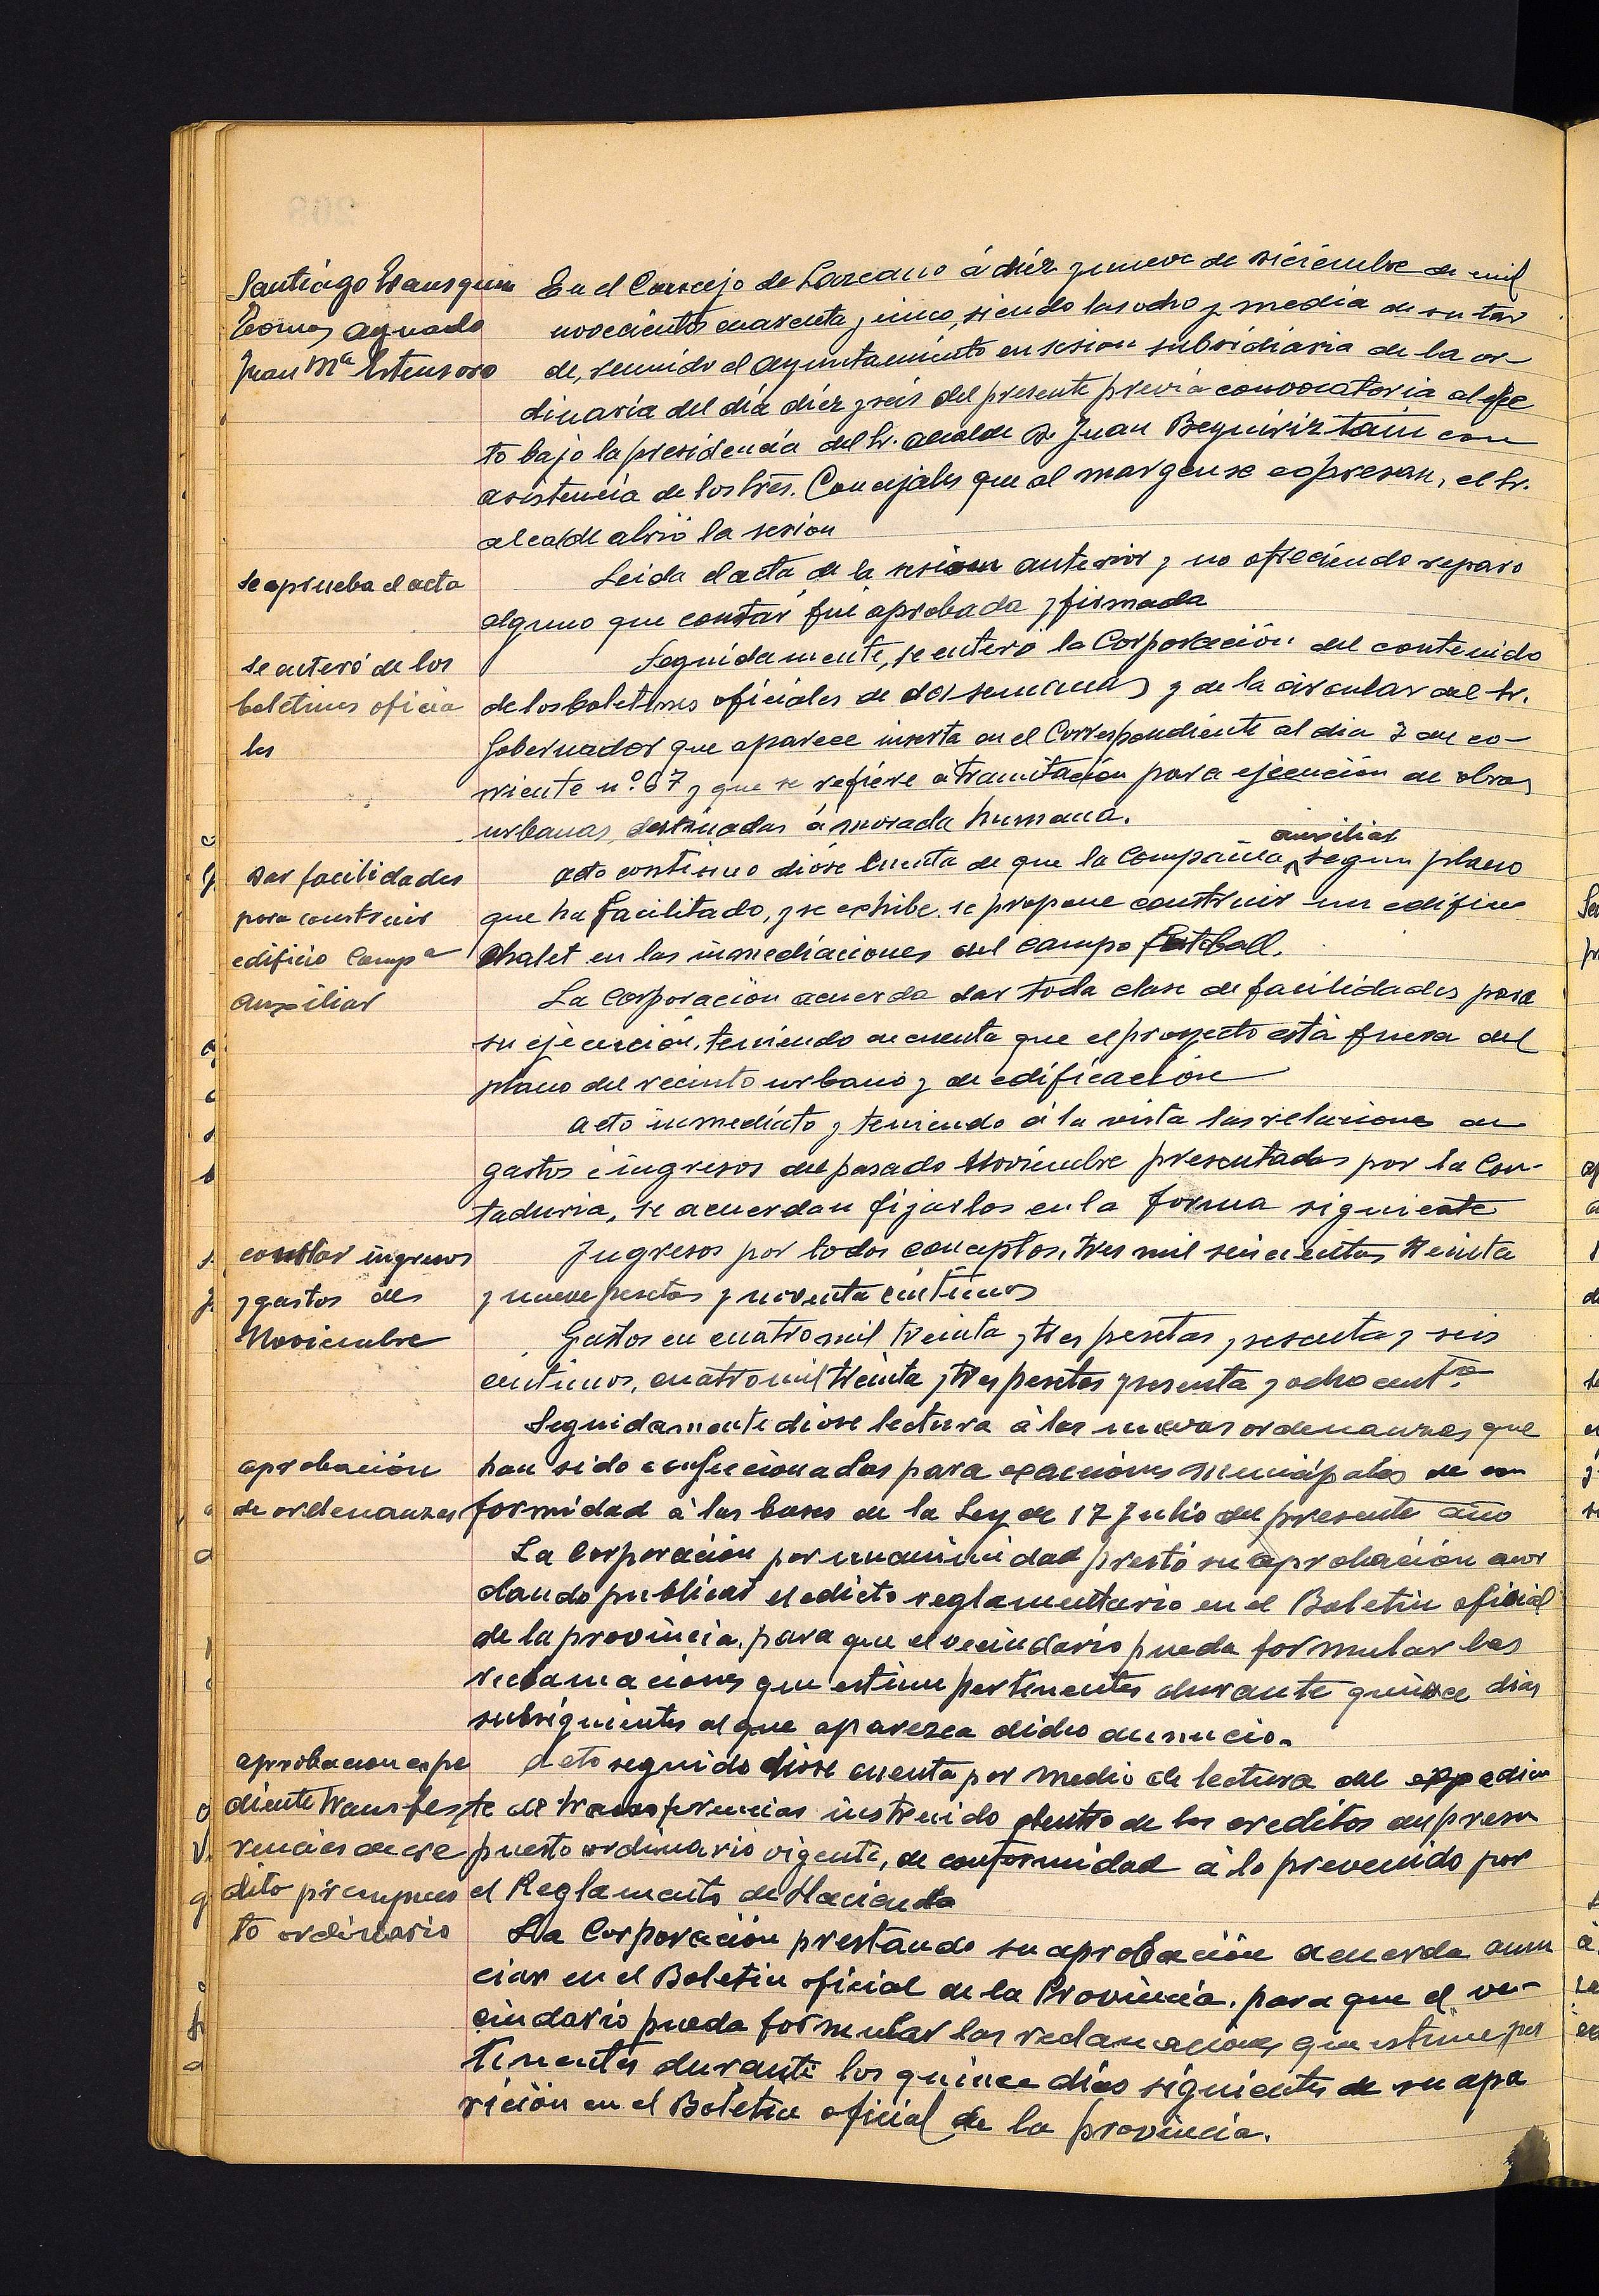 Santiago
Tomas Aguado
Juan Mª Estensoro
En el Concejo de Lazcano á diéz y nueve de diciembre de mil
novecientos cuarenta y cinco, siendo las ocho y media de su tar
de, reunido el Ayuntamiento en sesion subsidiaria de la or
dinaria del día diéz y seis del presente previa convocatoria al efec
to bajo la presidencia del Sr. Alcalde D. Juan Beguiriztain con
asistencia de los Sres. Concejales que al margen se expresan, el Sr.
alcalde abrió la sesion
Se aprueba el acta
Leida el acta de la sesion anterior y no ofreciendo reparo
alguno que constar fué aprobada y firmada
Se enteró de los
boletines oficia
les
Seguidamente, se enteró la Corporación del contenido
de los boletines oficiales de dos semanas y de la circular del Sr.
Gobernador que aparece inserta en el Correspondiente al dia 7 del co-
rriente nº 67 y que se refiere a tramitación para ejecución de obras
urbanas destinadas á morada humana.
Dar facilidades
para construir
edificio Compª
Auxiliar
acto continuo dióse Cuenta de que la Compañia auxiliar segun plano
que ha facilitado, y se exhibe, se propone construir un edificio
Chalet en las inmediaciones del campo Futball.
La Corporación acuerda dar toda clase de facilidades para
su ejecución, teniendo en cuenta que el proyecto está fuera del
plano del recinto urbano y de edificación
Acto inmediato y teniendo á la vista las relaciones de
gastos é ingresos del pasado Noviembre presentadas por la Con-
taduria, se acuerdan fijarlos en la forma siguiente
constar ingresos
y gastos de
Noviembre
Ingresos por todos conceptos, tres mil seiscientas treinta
y nueve pesetas y noventa céntimos
Gastos en cuatro mil treinta y tres pesetas y sesenta y seis
centimos, cuatro mil treinta y tres pesetas y sesenta y ocho centº
Seguidamente dióse lectura á las nuevas ordenanzas que
aprobación
de ordenanzas
han sido confeccionadas para exacciones Municipales de con
formidad á las bases de la Ley de 17 Julio del presente año
La Corporación por unanimidad prestó su aprobación acor
dando publicar el edicto reglamentario en el Boletin oficial
de la provincia, para que el vecindario pueda formular las
reclamaciones que estime pertinentes durante quince dias
subsiguientes al que aparezca dicho anuncio.
aprobacion expe
diente transfe
rencias de cre
dito presupues
to ordinario
Acto seguido dióse cuenta por medio de lectura del expedien
te de transferencias instruido dentro de los creditos del presu
puesto ordinario vigente, de conformidad á lo prevenido por
el Reglamento de Hacienda
La Corporación prestando su aprobación acuerda anun
ciar en el Boletin oficial de la Provincia, para que el ve-
cindario pueda formular las reclamaciones que estime per
tinentes durante los quince días siguientes de su apa
rición en el Boletin oficial de la provincia.